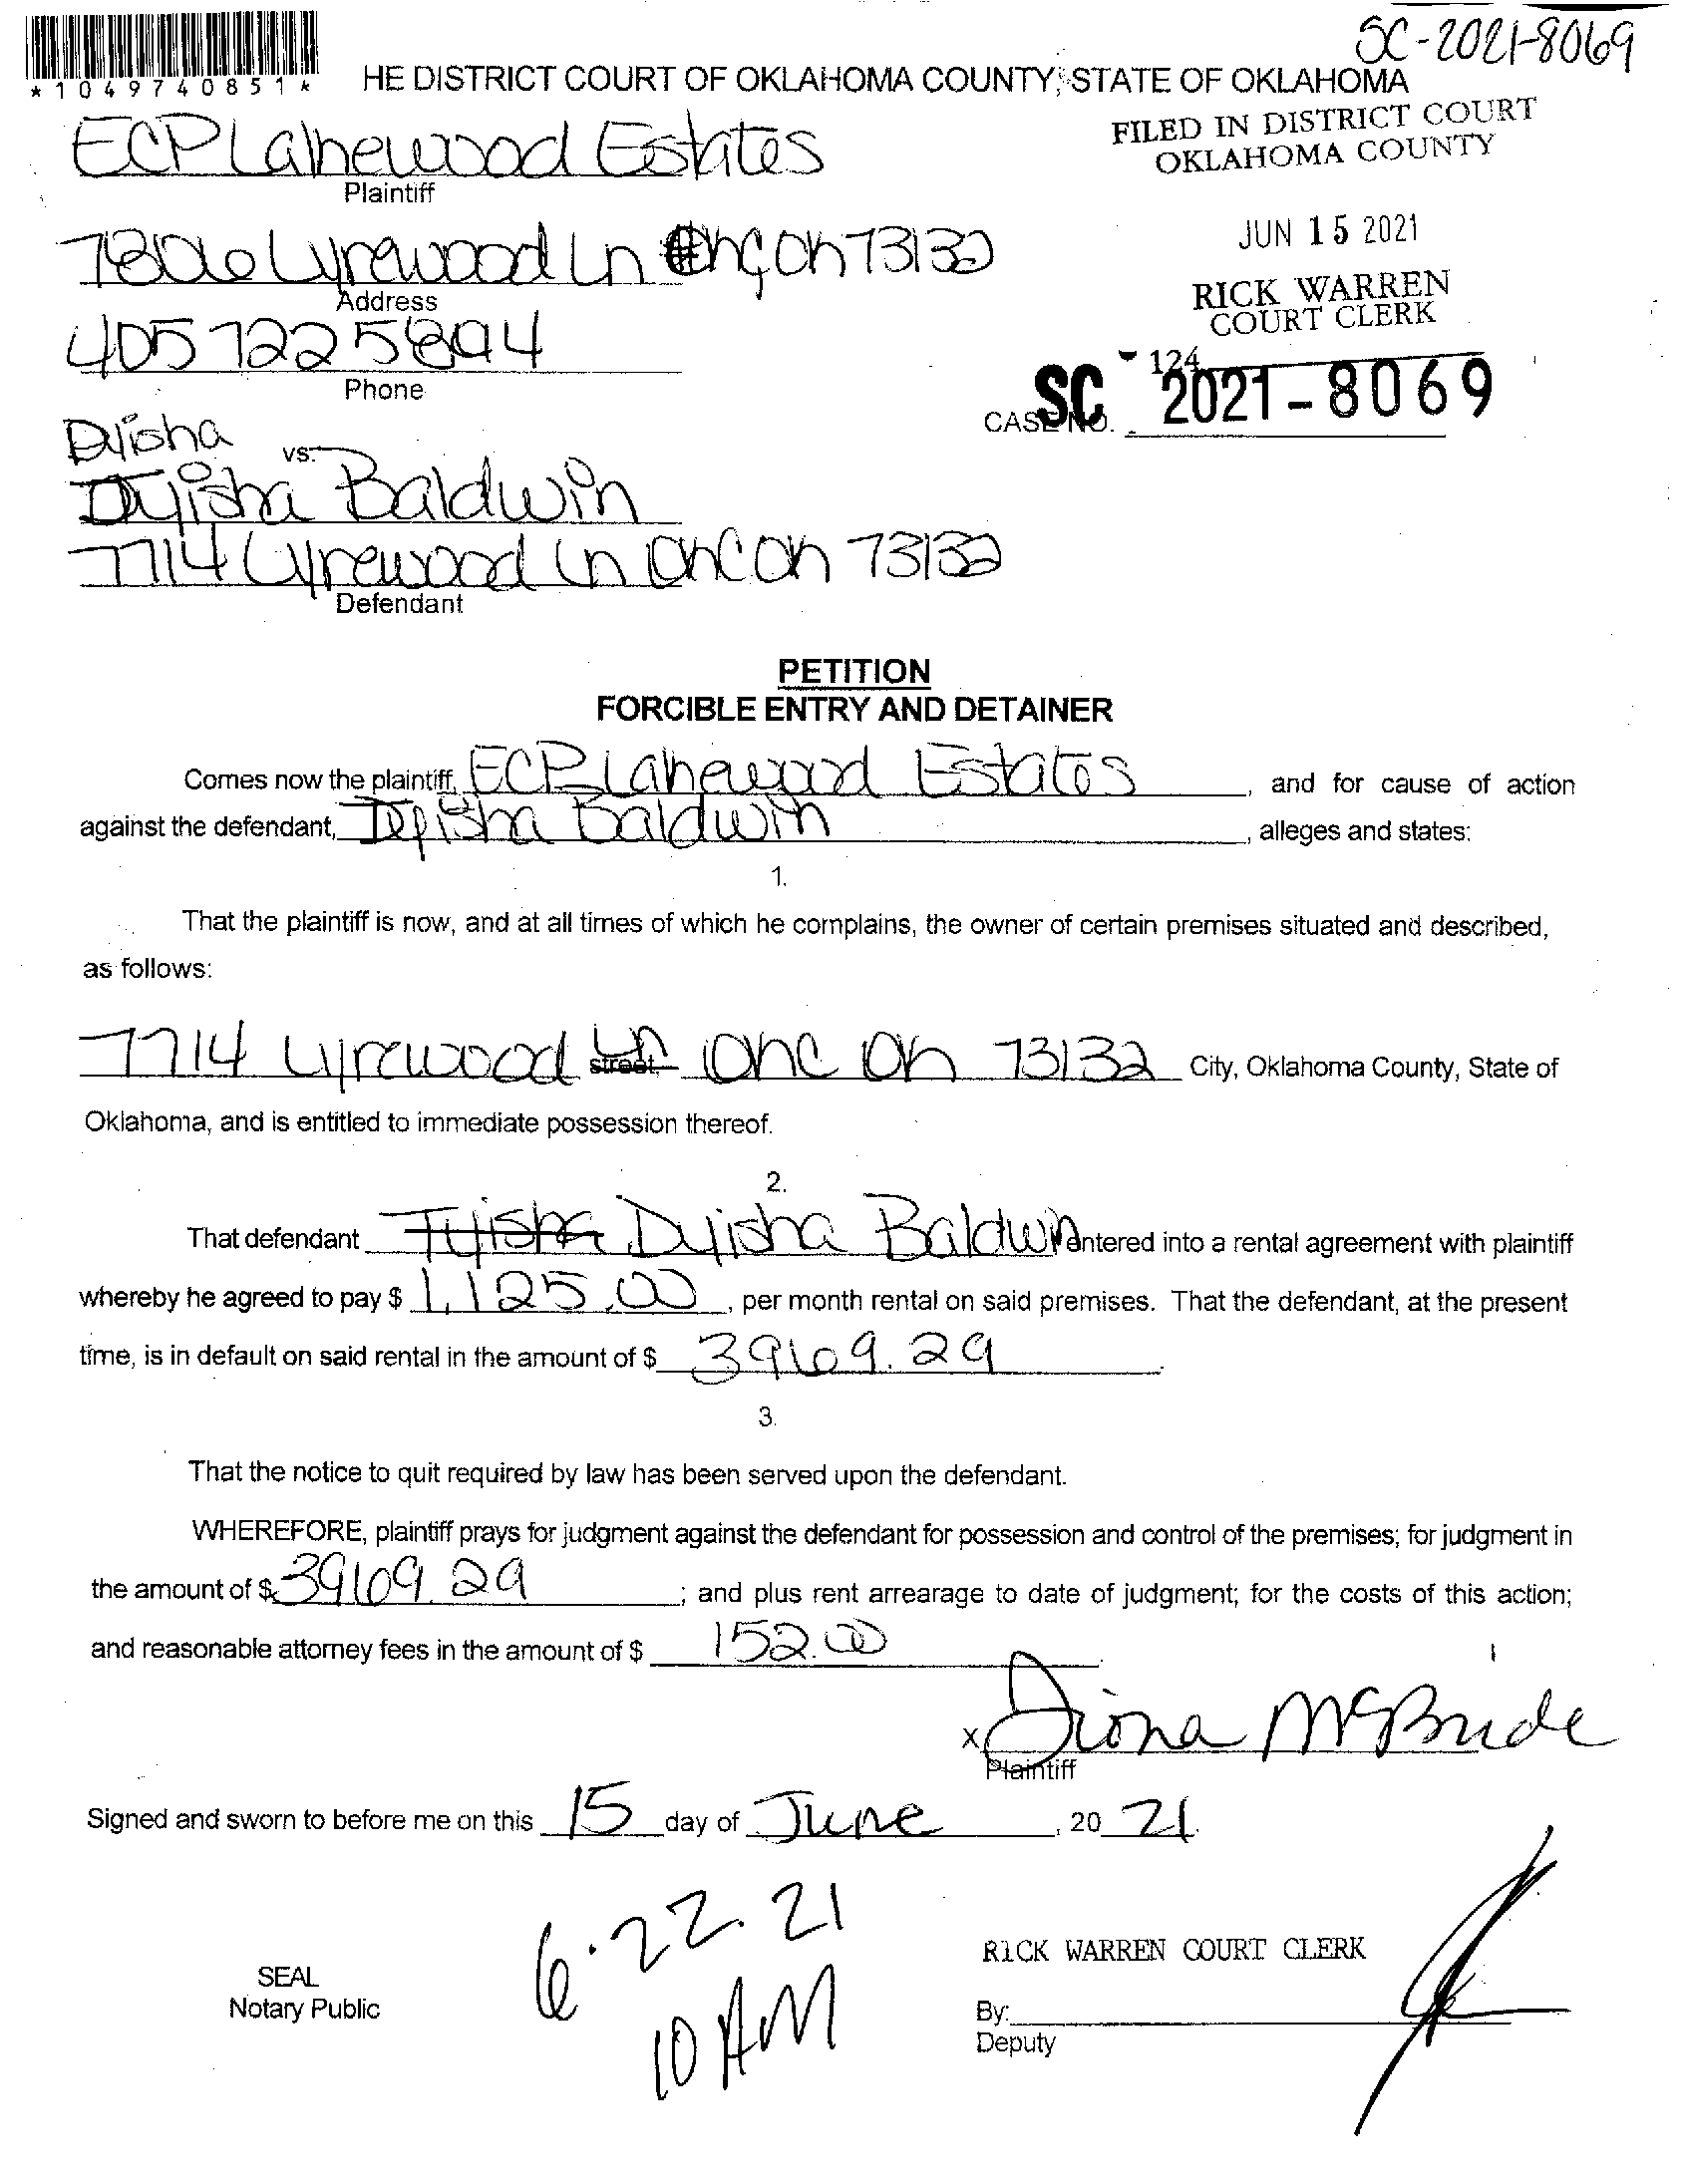 SC-2021-8069
*1049740851*
HE DISTRICT COURT OF OKLAHOMA COUNTY, STATE OF OKLAHOMA
FILED IN DISTRICT COURT
OKLAHOMA COUNTY
ECP Lakewood Estates
Plaintiff
JUN 15 2021
7806 Lyrewood Ln OKC OK 73132
Address
RICK WARREN
COURT CLERK
405 722 5894
Phone
124
CASE NO. SC 2021-8069
Dyisha
vs.
Dyisha Baldwin
7714 Lyrewood Ln OKC OK 73132
Defendant
PETITION
FORCIBLE ENTRY AND DETAINER
Comes now the plaintiff, ECP Lakewood Estates, and for cause of action
against the defendant, Dyisha Baldwin, alleges and states:
1.
That the plaintiff is now, and at all times of which he complains, the owner of certain premises situated and described,
as follows:
7714 Lyrewood Ln street, OKC OK 73132 City, Oklahoma County, State of
Oklahoma, and is entitled to immediate possession thereof.
2.
That defendant Tyisha Dyisha Baldwin entered into a rental agreement with plaintiff
whereby he agreed to pay $ 1,125.00, per month rental on said premises. That the defendant, at the present
time, is in default on said rental in the amount of $ 3969.29.
3.
That the notice to quit required by law has been served upon the defendant.
WHEREFORE, plaintiff prays for judgment against the defendant for possession and control of the premises; for judgment in
the amount of $ 3969.29; and plus rent arrearage to date of judgment; for the costs of this action;
and reasonable attorney fees in the amount of $ 152.00.
x Diona McBride
Plaintiff
Signed and sworn to before me on this 15 day of June, 20 21.
6.22.21
10 AM
RICK WARREN COURT CLERK
SEAL
Notary Public
By:
Deputy